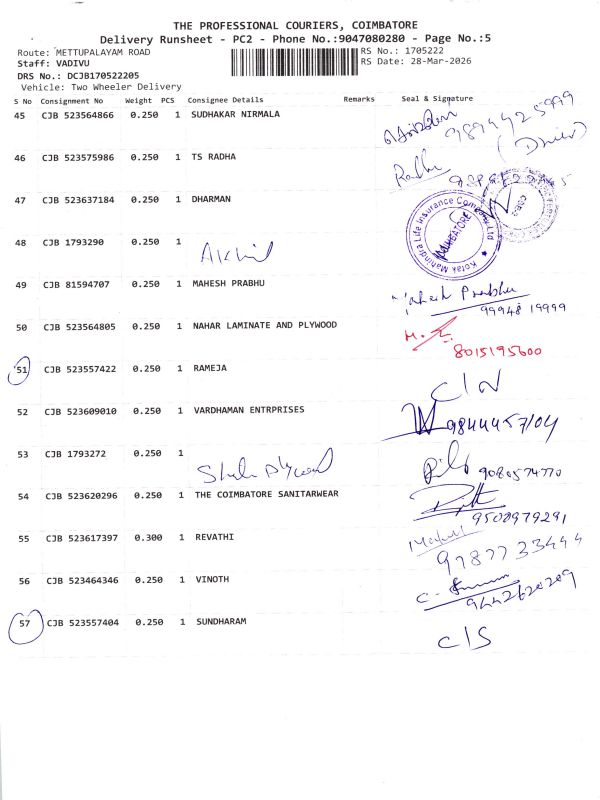 THE PROFESSIONAL COURIERS, COIMBATORE
Delivery Runsheet - PC2 - Phone No.:9047080280 - Page No.:5
Route: METTUPALAYAM ROAD RS No.: 1705222
Staff: VADIVU RS Date: 28-Mar-2026
DRS No.: DCJB170522205
Vehicle: Two Wheeler Delivery
S No Consignment No Weight PCS Consignee Details Remarks Seal & Signature
45 CJB 523564866 0.250 1 SUDHAKAR NIRMALA 9894425999
(Driver)
46 CJB 523575986 0.250 1 TS RADHA Radha
47 CJB 523637184 0.250 1 DHARMAN
Kotak Mahindra Life Insurance Company Ltd
COIMBATORE
48 CJB 1793290 0.250 1
Akhil
49 CJB 81594707 0.250 1 MAHESH PRABHU Mahesh Prabhu
99948 19999
50 CJB 523564805 0.250 1 NAHAR LAMINATE AND PLYWOOD
8015195600
51 CJB 523557422 0.250 1 RAMEJA C/N
52 CJB 523609010 0.250 1 VARDHAMAN ENTRPRISES 9844457104
53 CJB 1793272 0.250 1
9080574770
54 CJB 523620296 0.250 1 THE COIMBATORE SANITARWEAR
9508979291
55 CJB 523617397 0.300 1 REVATHI
9787733444
56 CJB 523464346 0.250 1 VINOTH
9442620209
57 CJB 523557404 0.250 1 SUNDHARAM C/S